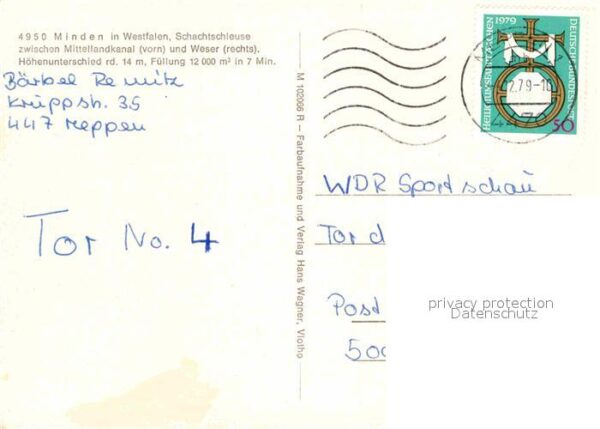 4950 Minden in Westfalen, Schachtschleuse
zwischen Mittellandkanal (vorn) und Weser (rechts).
Höhenunterschied rd. 14 m, Füllung 12 000 m³ in 7 Min.
Bärbel Remitz
Kruppstr. 35
447 Meppen
Tor No. 4
M 102066 R – Farbaufnahme und Verlag Hans Wagner, Vlotho
HEILIGTUMSFAHRT AACHEN 1979
DEUTSCHE BUNDESPOST
50
2.7.79-10
447
WDR Sportschau
Tor d
Post
500
privacy protection
Datenschutz